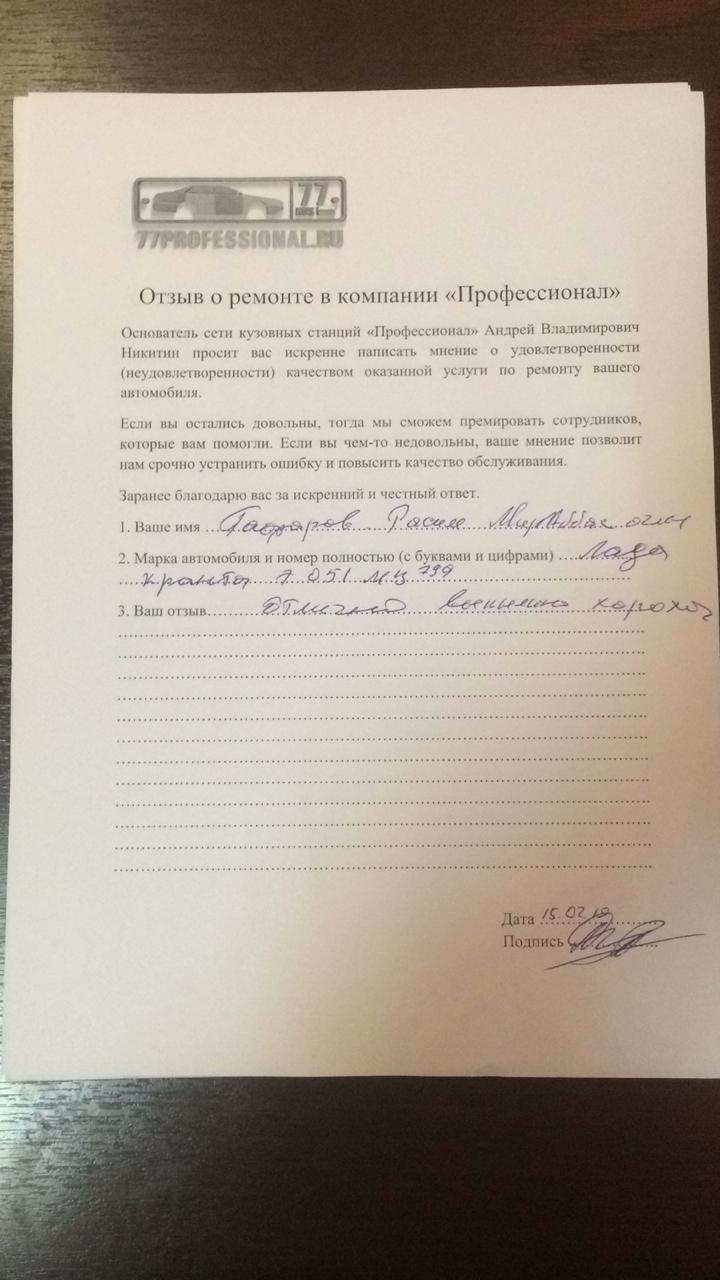 77
77PROFESSIONAL.RU
Отзыв о ремонте в компании «Профессионал»
Основатель сети кузовных станций «Профессионал» Андрей Владимирович
Никитин просит вас искренне написать мнение о удовлетворенности
(неудовлетворенности) качеством оказанной услуги по ремонту вашего
автомобиля.
Если вы остались довольны, тогда мы сможем премировать сотрудников,
которые вам помогли. Если вы чем-то недовольны, ваше мнение позволит
нам срочно устранить ошибку и повысить качество обслуживания.
Заранее благодарю вас за искренний и честный ответ.
1. Ваше имя Гафаров Расим МирАббас оглы
2. Марка автомобиля и номер полностью (с буквами и цифрами) Лада
кранта 051 МЦ 799
3. Ваш отзыв Отлично
Дата 15.02.19
Подпись